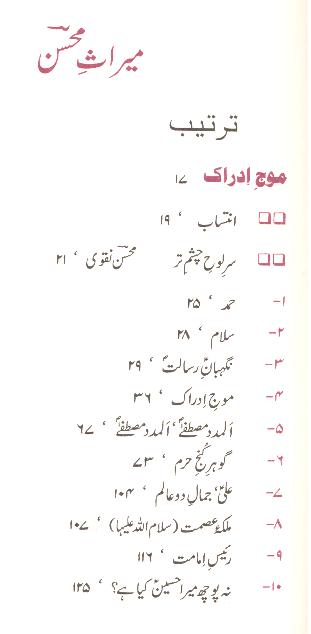 میراثِ محسنؔ
ترتیب
موجِ اِدراک ۱۷
□□ انتساب ‘ ۱۹
□□ سرِ لوحِ چشمِ تر محسنؔ نقوی ‘ ۲۱
۱- حمد ‘ ۲۵
۲- سلام ‘ ۲۸
۳- نگہبانِؑ رسالتؐ ‘ ۲۹
۴- موجِ اِدراک ‘ ۳۶
۵- اَلمدد مصطفےٰؐ‘ اَلمدد مصطفےٰؐ ‘ ۶۷
۶- گوہرِ کُنجِ حرم ‘ ۷۳
۷- علیؑ‘ جمالِ دو عالم ‘ ۱۰۴
۸- ملکۂ عصمت (سلام اللہ علیہا) ‘ ۱۰۷
۹- رئیسِ اِمامت ‘ ۱۱۶
۱۰- نہ پوچھ میرا حسینؑ کیا ہے؟ ‘ ۱۲۵